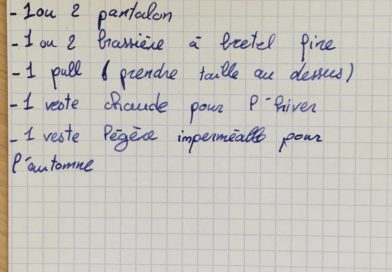 - 1 ou 2 pantalon
- 1 ou 2 brassière à bretel fine
- 1 pull (prendre taille au dessus)
- 1 veste chaude pour l'hiver
- 1 veste légère imperméable pour
l'automne